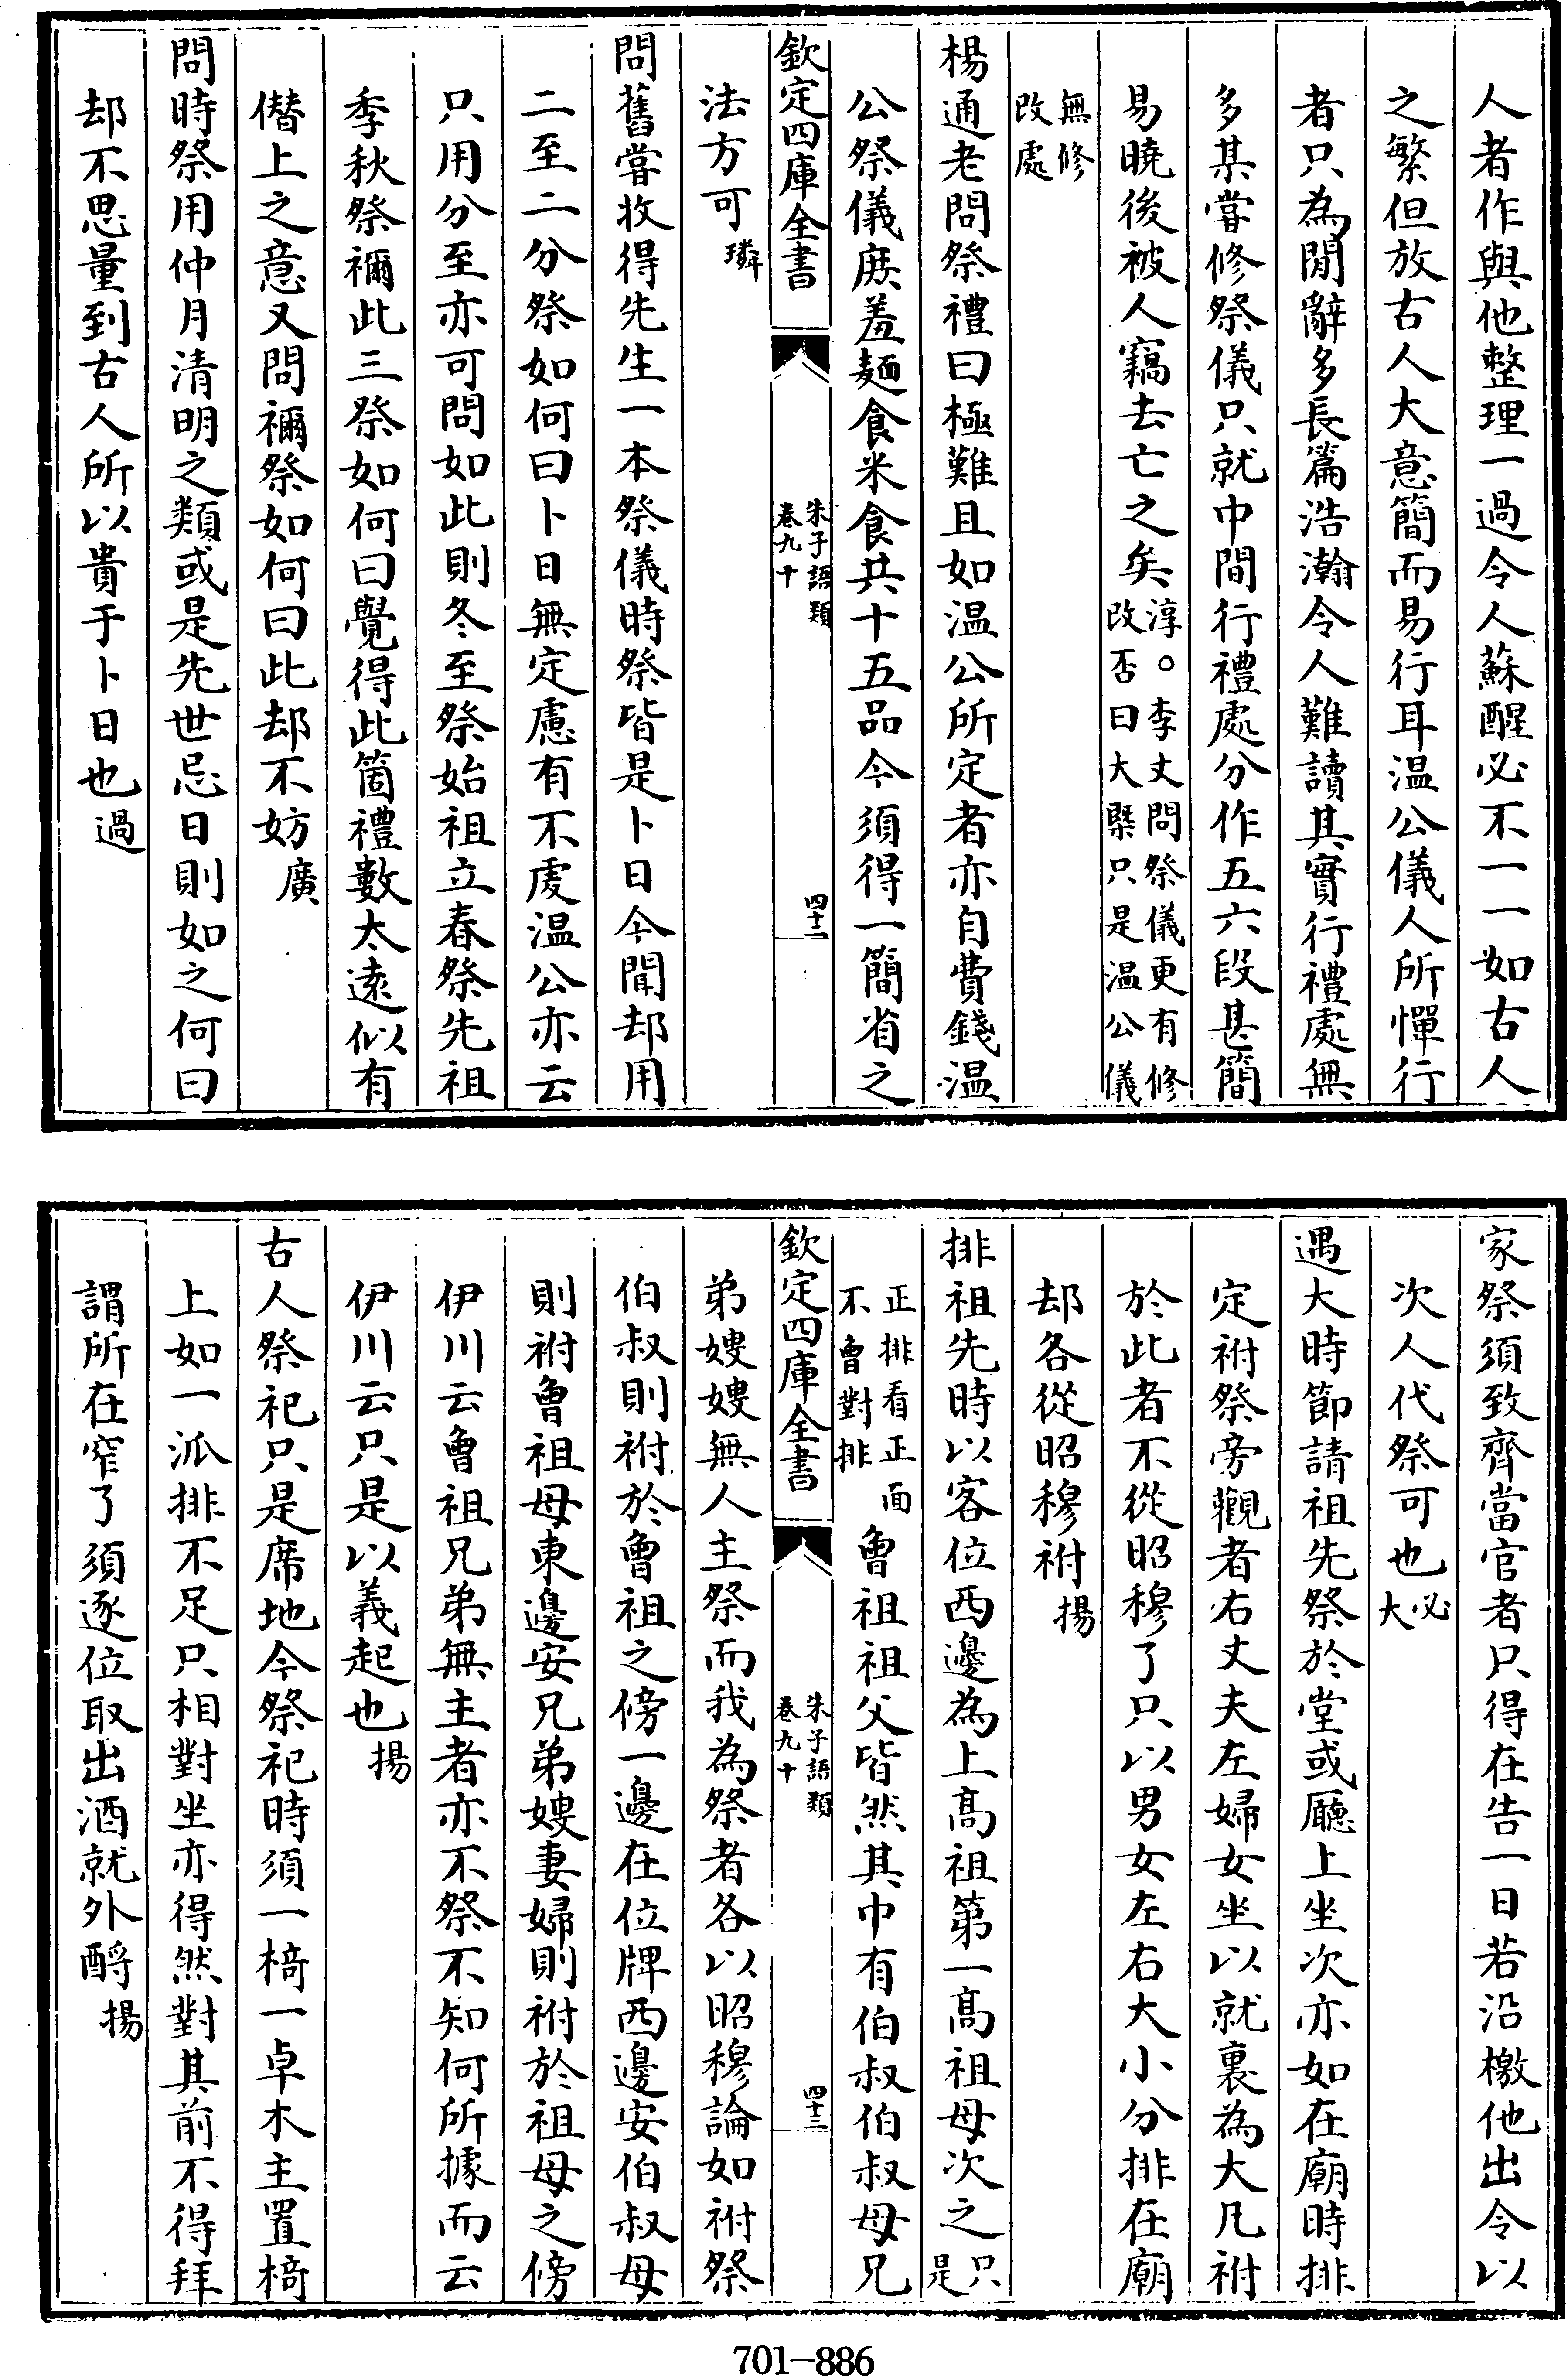 人者作與他整理一過令人蘇醒必不一一如古人
之繁但放古人大意簡而易行耳温公儀人所憚行
者只為閒辭多長篇浩瀚令人難讀其實行禮處無
多某嘗修祭儀只就中間行禮處分作五六段甚簡
易曉後被人竊去亡之矣淳○李丈問祭儀更有修改否曰大槩只是温公儀
無修改處
楊通老問祭禮曰極難且如温公所定者亦自費錢温
公祭儀庶羞麵食米食共十五品今須得一簡省之
欽定四庫全書 朱子語類卷九十 四十二
法方可璘
問舊嘗收得先生一本祭儀時祭皆是卜日今聞却用
二至二分祭如何曰卜日無定慮有不䖍温公亦云
只用分至亦可問如此則冬至祭始祖立春祭先祖
季秋祭禰此三祭如何曰覺得此箇禮數太逺似有
僣上之意又問禰祭如何曰此却不妨廣
問時祭用仲月清明之類或是先世忌日則如之何曰
却不思量到古人所以貴于卜日也過
家祭須致齊當官者只得在告一日若沿檄他出令以
次人代祭可也必大
遇大時節請祖先祭於堂或廳上坐次亦如在廟時排
定祔祭旁觀者右丈夫左婦女坐以就裏為大凡祔
於此者不從昭穆了只以男女左右大小分排在廟
却各從昭穆祔揚
排祖先時以客位西邊為上髙祖第一髙祖母次之只是
正排看正面不㑹對排曾祖祖父皆然其中有伯叔伯叔母兄
欽定四庫全書 朱子語類卷九十 四十三
弟嫂嫂無人主祭而我為祭者各以昭穆論如祔祭
伯叔則祔於曾祖之傍一邊在位牌西邊安伯叔母
則祔曾祖母東邊安兄弟嫂妻婦則祔於祖母之傍
伊川云曾祖兄弟無主者亦不祭不知何所據而云
伊川云只是以義起也揚
古人祭祀只是席地今祭祀時須一椅一卓木主置椅
上如一派排不足只相對坐亦得然對其前不得拜
謂所在窄了須逐位取出酒就外酹揚
701-886